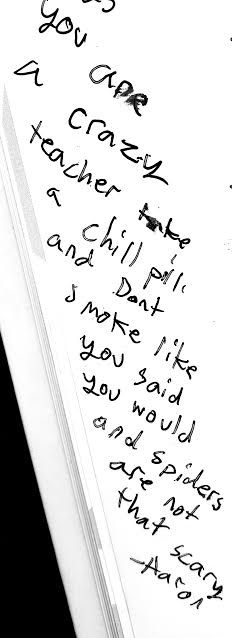 you are
a crazy
teacher take
a chill pill
and Dont
smoke like
you said
you would
and spiders
are not
that scary
-Aaron